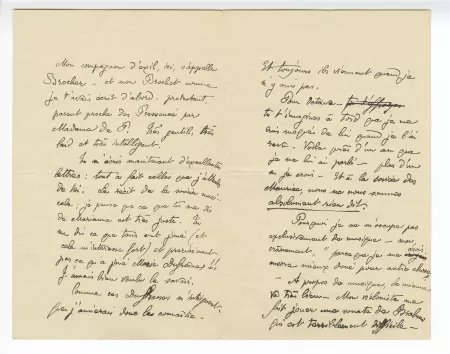 Mon compagnon d'exil, ici, s'appelle
Brocher - et non Brochet comme
je t'avais écrit d'abord. protestant,
parent proche des Pressensé par
Madame de P. Très gentil, très
laid et très intelligent.
Tu m'écris maintenant d'excellentes
lettres: tout à fait celles que j'attends
de toi. Le récit de la soirée musi-
cale; je pense que ce que tu me dis
de Marianne est très juste. Tu
me dis ce que tous ont joué (et
cela m'intéresse fort) et précisément
pas ce qu'a joué Marie
J'aurais bien voulu le savoir.
Comme ces m'intriguent.
que j'aimerais donc les connaître.
Et toujours ils viennent quand je
n'y suis pas.
Pour
tu t'imagines à tort que je ne
suis de lui quand je l'ai
revu. Voilà près d'un an que
je ne lui ai parlé - plus d'un
an je crois - Et à la soirée des
Maurice, nous ne nous sommes
absolument rien dit.
Pourquoi je ne m'occupe pas
exclusivement de musique - mais,
vraiment, parce que je me crois
encore mieux doué pour autre chose.
- A propos de musique, la mienne
va très bien - Mon violoniste me
fait jouer une sonate de
qui est terriblement difficile -